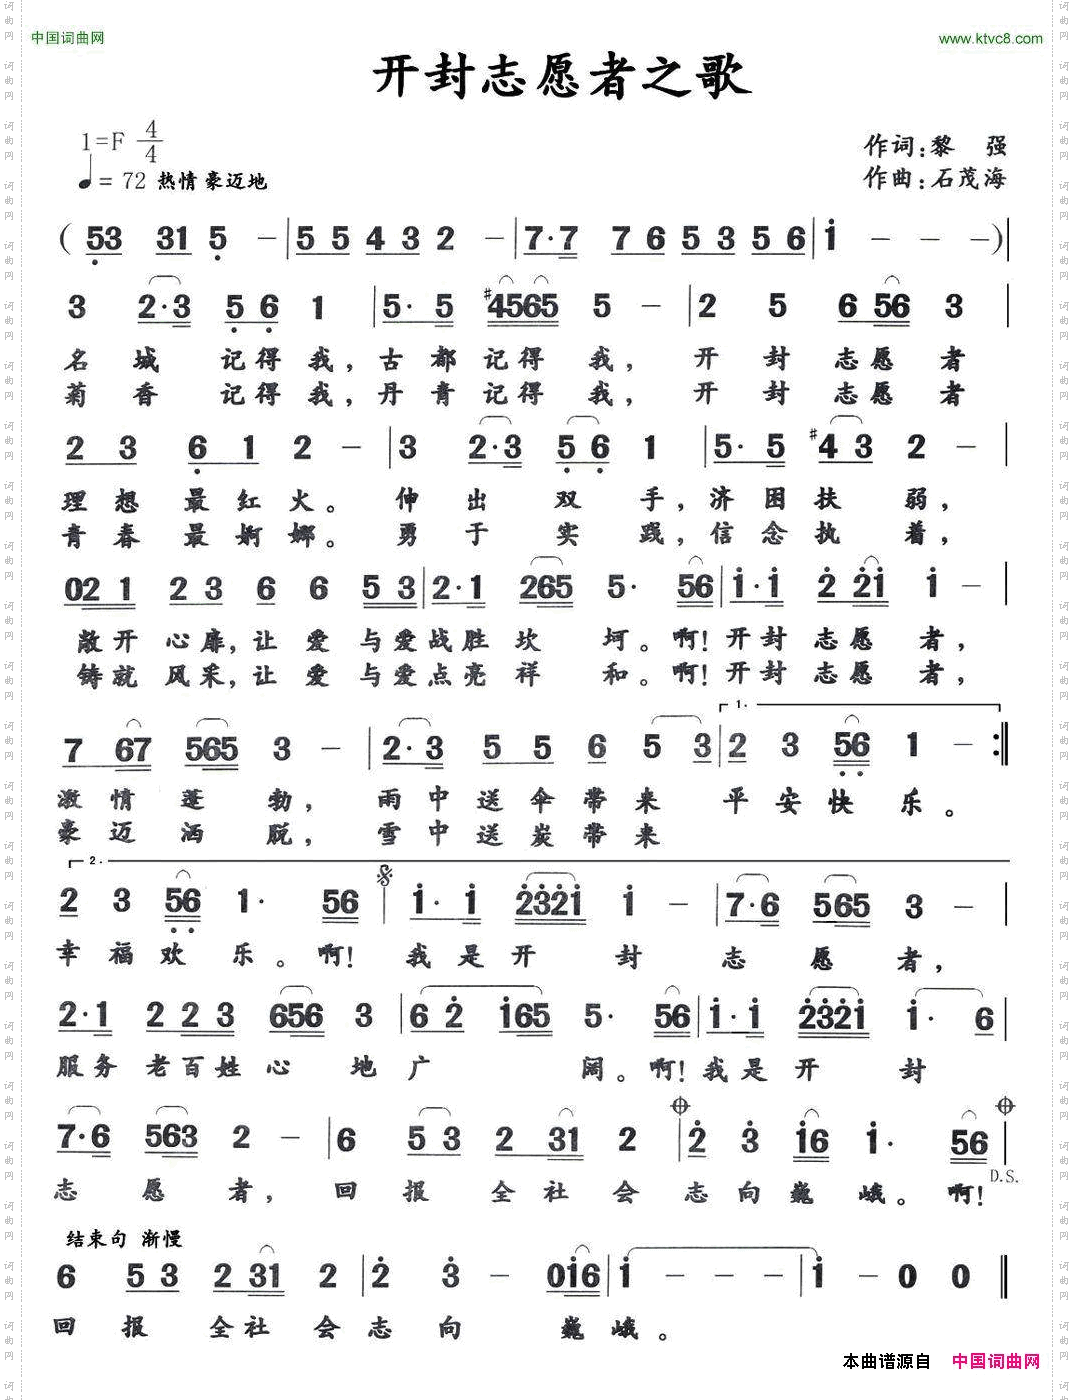 中国词曲网 www.ktvc8.com
开封志愿者之歌
1=F 4/4
作词:黎 强
♩= 72 热情 豪迈地
作曲:石茂海
( 53 31 5 － | 5 5 4 3 2 － | 7·7 7 6 5 3 5 6 | i － － －) |
3 2·3 5 6 1 | 5· 5 #4565 5 － | 2 5 6 56 3 |
名 城 记得 我, 古 都 记得 我, 开 封 志愿 者
菊 香 记得 我, 丹 青 记得 我, 开 封 志愿 者
2 3 6 1 2 － | 3 2·3 5 6 1 | 5· 5 #4 3 2 － |
理 想 最 红 火。 伸 出 双 手, 济 困 扶 弱,
青 春 最 婀 娜。 勇 于 实 践, 信 念 执 着,
02 1 2 3 6 6 5 3 | 2·1 265 5· 56 | i·i 2 2i i － |
敞开 心扉,让 爱 与爱战胜 坎 坷。啊!开封 志愿 者,
铸就 风采,让 爱 与爱点亮 祥 和。啊!开封 志愿 者,
7 67 565 3 － | 2·3 5 5 6 5 3 | 1. 2 3 56 1 － :|
激 情 蓬 勃, 雨 中 送 伞 带 来 平 安 快 乐。
豪 迈 洒 脱, 雪 中 送 炭 带 来
2. 2 3 56 1· 56 | i· i 2321 i － | 7·6 565 3 － |
幸 福 欢 乐。啊! 我 是 开 封 志 愿 者,
2·1 2 2 3 656 3 | 6 2 i65 5· 56 | i·i 2321 i· 6 |
服务 老百姓 心 地 广 阔。啊!我是 开 封
7·6 563 2 － | 6 5 3 2 31 2 | 2 3 i6 i· 56 |
D.S.
志 愿 者, 回 报 全 社 会 志 向 巍 峨。啊!
结束句 渐慢
6 5 3 2 31 2 | 2 3 － 0i6 | i － － － | i － 0 0 ‖
回 报 全社 会 志 向 巍 峨。
本曲谱源自 中国词曲网